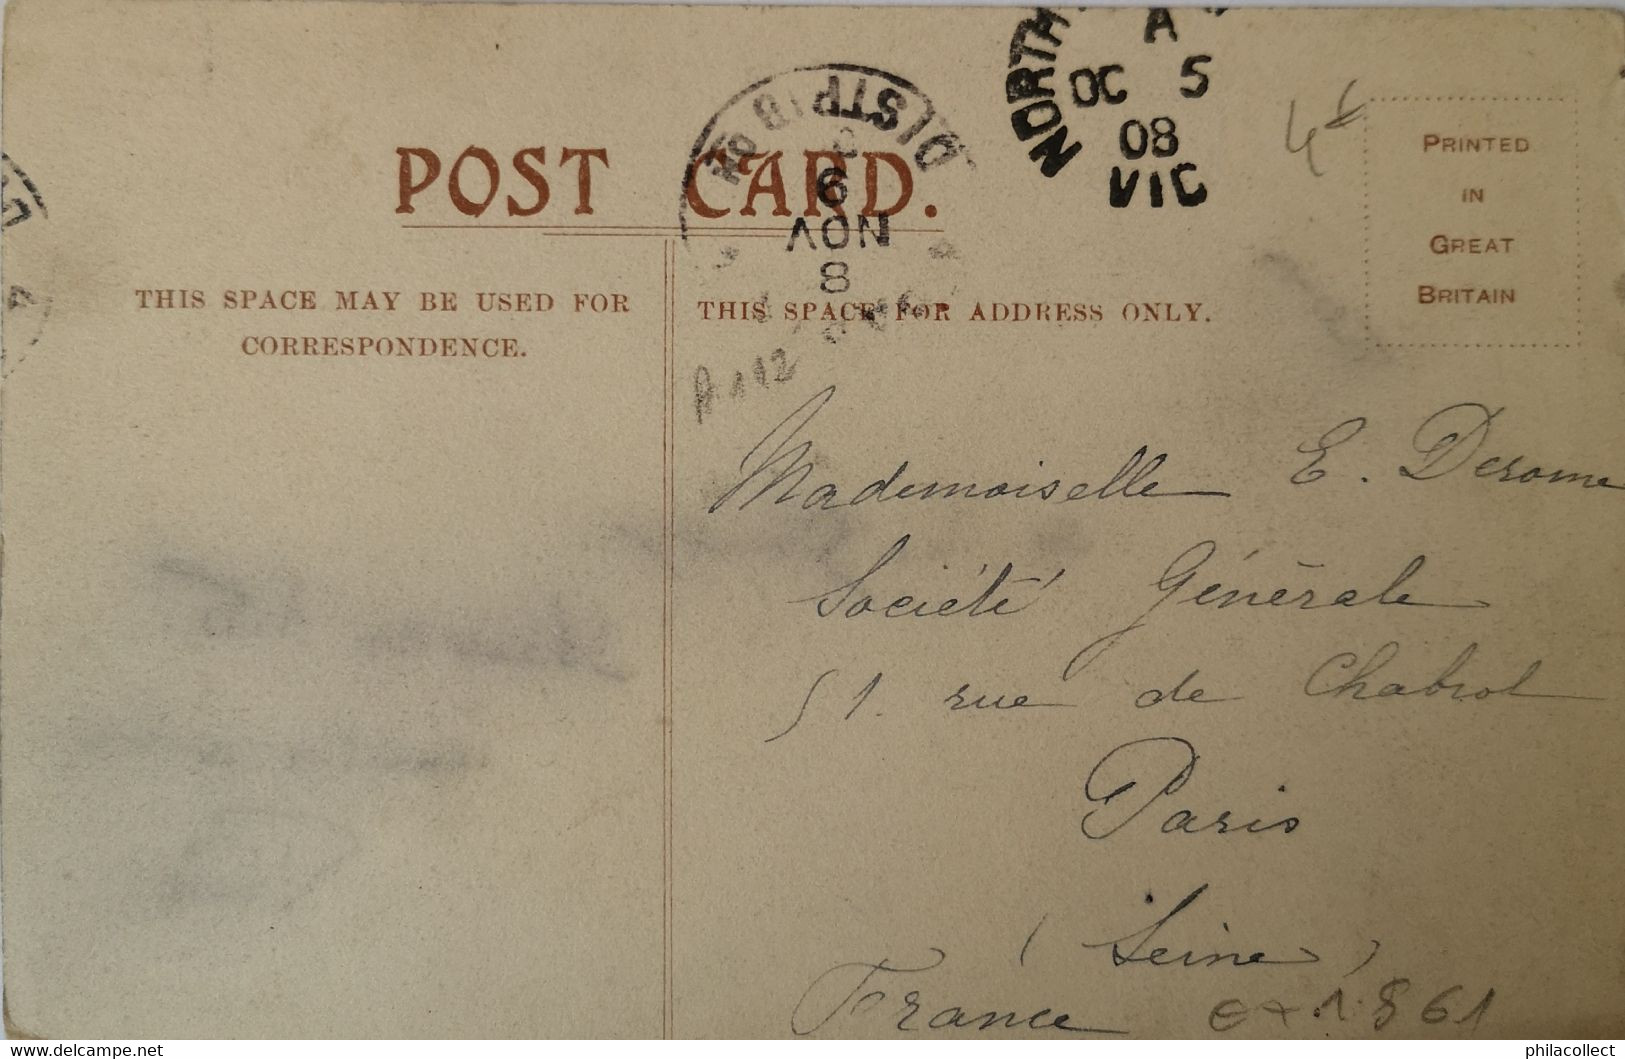 POST CARD.
THIS SPACE MAY BE USED FOR
CORRESPONDENCE.
THIS SPACE FOR ADDRESS ONLY.
PRINTED
IN
GREAT
BRITAIN
NORTH
A
OC 5
08
VIC
DISTRIBON
9
NOV
8
A112
Mademoiselle E. Derome
Société Générale
51. rue de Chabrol
Paris
(Seine)
France
philacollect